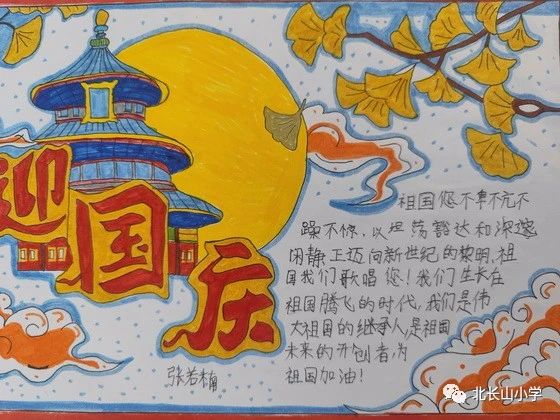 迎国庆
祖国您不卑不亢不
躁不惊，以坦荡豁达和深邃
闲静正迈向新世纪的黎明,祖
国我们歌唱您！我们生长在
祖国腾飞的时代,我们是伟
大祖国的继承人,是祖国
未来的开创者,为
祖国加油！
张若楠
北长山小学